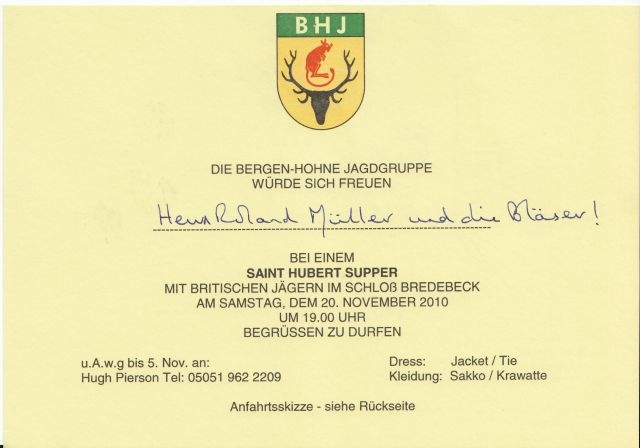 BHJ
DIE BERGEN-HOHNE JAGDGRUPPE
WÜRDE SICH FREUEN
Herrn Roland Müller und die Bläser!
BEI EINEM
SAINT HUBERT SUPPER
MIT BRITISCHEN JÄGERN IM SCHLOß BREDEBECK
AM SAMSTAG, DEM 20. NOVEMBER 2010
UM 19.00 UHR
BEGRÜSSEN ZU DURFEN
u.A.w.g bis 5. Nov. an:
Hugh Pierson Tel: 05051 962 2209
Dress: Jacket / Tie
Kleidung: Sakko / Krawatte
Anfahrtsskizze - siehe Rückseite